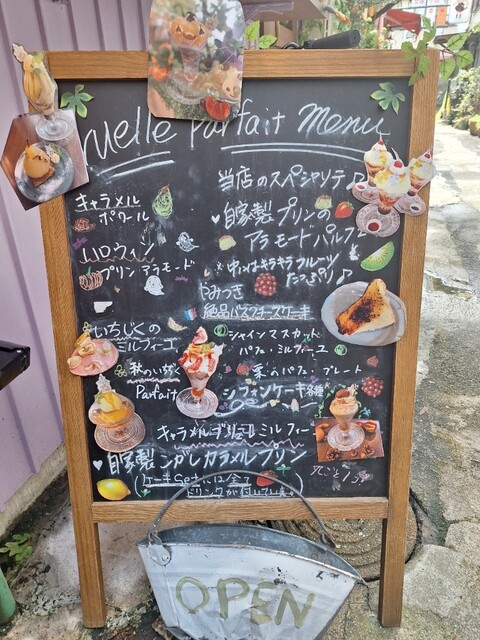 uelle Parfait Menu
当店のスペシャリテ♪
キャラメル
ポワール
♥自家製プリンの
アラモードパルフェ
ハロウィン
プリンアラモード
※中はキラキラフルーツ
たっぷり♪
やみつき
絶品バスクチーズケーキ
いちじくの
ミルフィーユ
シャインマスカット
パフェ・ミルフィーユ
秋のいちじく
Parfait
栗のパフェ・プレート
シフォンケーキ各種
キャラメル ミルフィーユ
♥自家製こがしカラメルプリン
(ケーキSetには全て
ドリンクが付いています。)
まるごと
OPEN